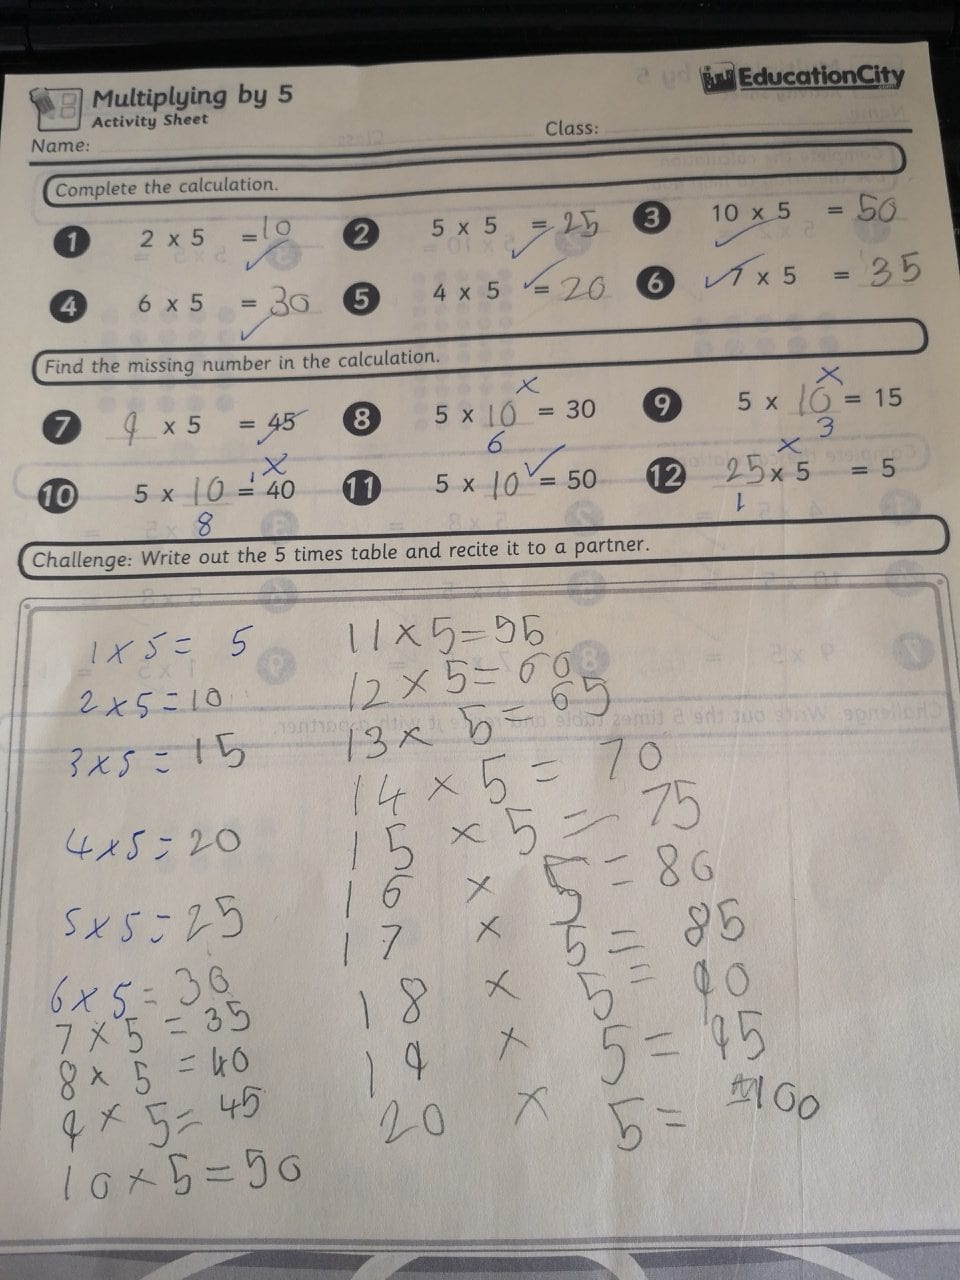 Multiplying by 5
Activity Sheet
EducationCity
.com
Name:
Class:
Complete the calculation.
1 2 x 5 = 10
2 5 x 5 = 25
3 10 x 5 = 50
4 6 x 5 = 30
5 4 x 5 = 20
6 7 x 5 = 35
Find the missing number in the calculation.
7 9 x 5 = 45
8 5 x 10 = 30
x
6
9 5 x 10 = 15
x
3
10 5 x 10 = 40
x
8
11 5 x 10 = 50
12 25 x 5 = 5
x
1
Challenge: Write out the 5 times table and recite it to a partner.
1 x 5 = 5
2 x 5 = 10
3 x 5 = 15
4 x 5 = 20
5 x 5 = 25
6 x 5 = 30
7 x 5 = 35
8 x 5 = 40
9 x 5 = 45
10 x 5 = 50
11 x 5 = 55
12 x 5 = 60
13 x 5 = 65
14 x 5 = 70
15 x 5 = 75
16 x 5 = 80
17 x 5 = 85
18 x 5 = 90
19 x 5 = 95
20 x 5 = 100